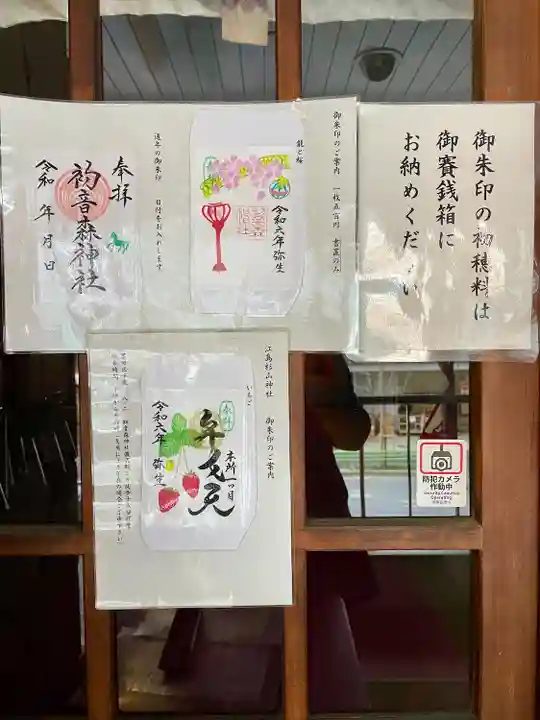 御朱印の初穂料は
御賽銭箱に
お納めください
御朱印のご案内 一枚五百円 書置のみ
龍と桜
令和六年弥生
通年の御朱印 日付をお入れします
奉拝
初音森神社
令和 年 月 日
江島杉山神社 御朱印のご案内
いちご
奉拝
本所一つ目
弁才天
令和六年 弥生
防犯カメラ
作動中
Security Cameras
Operating